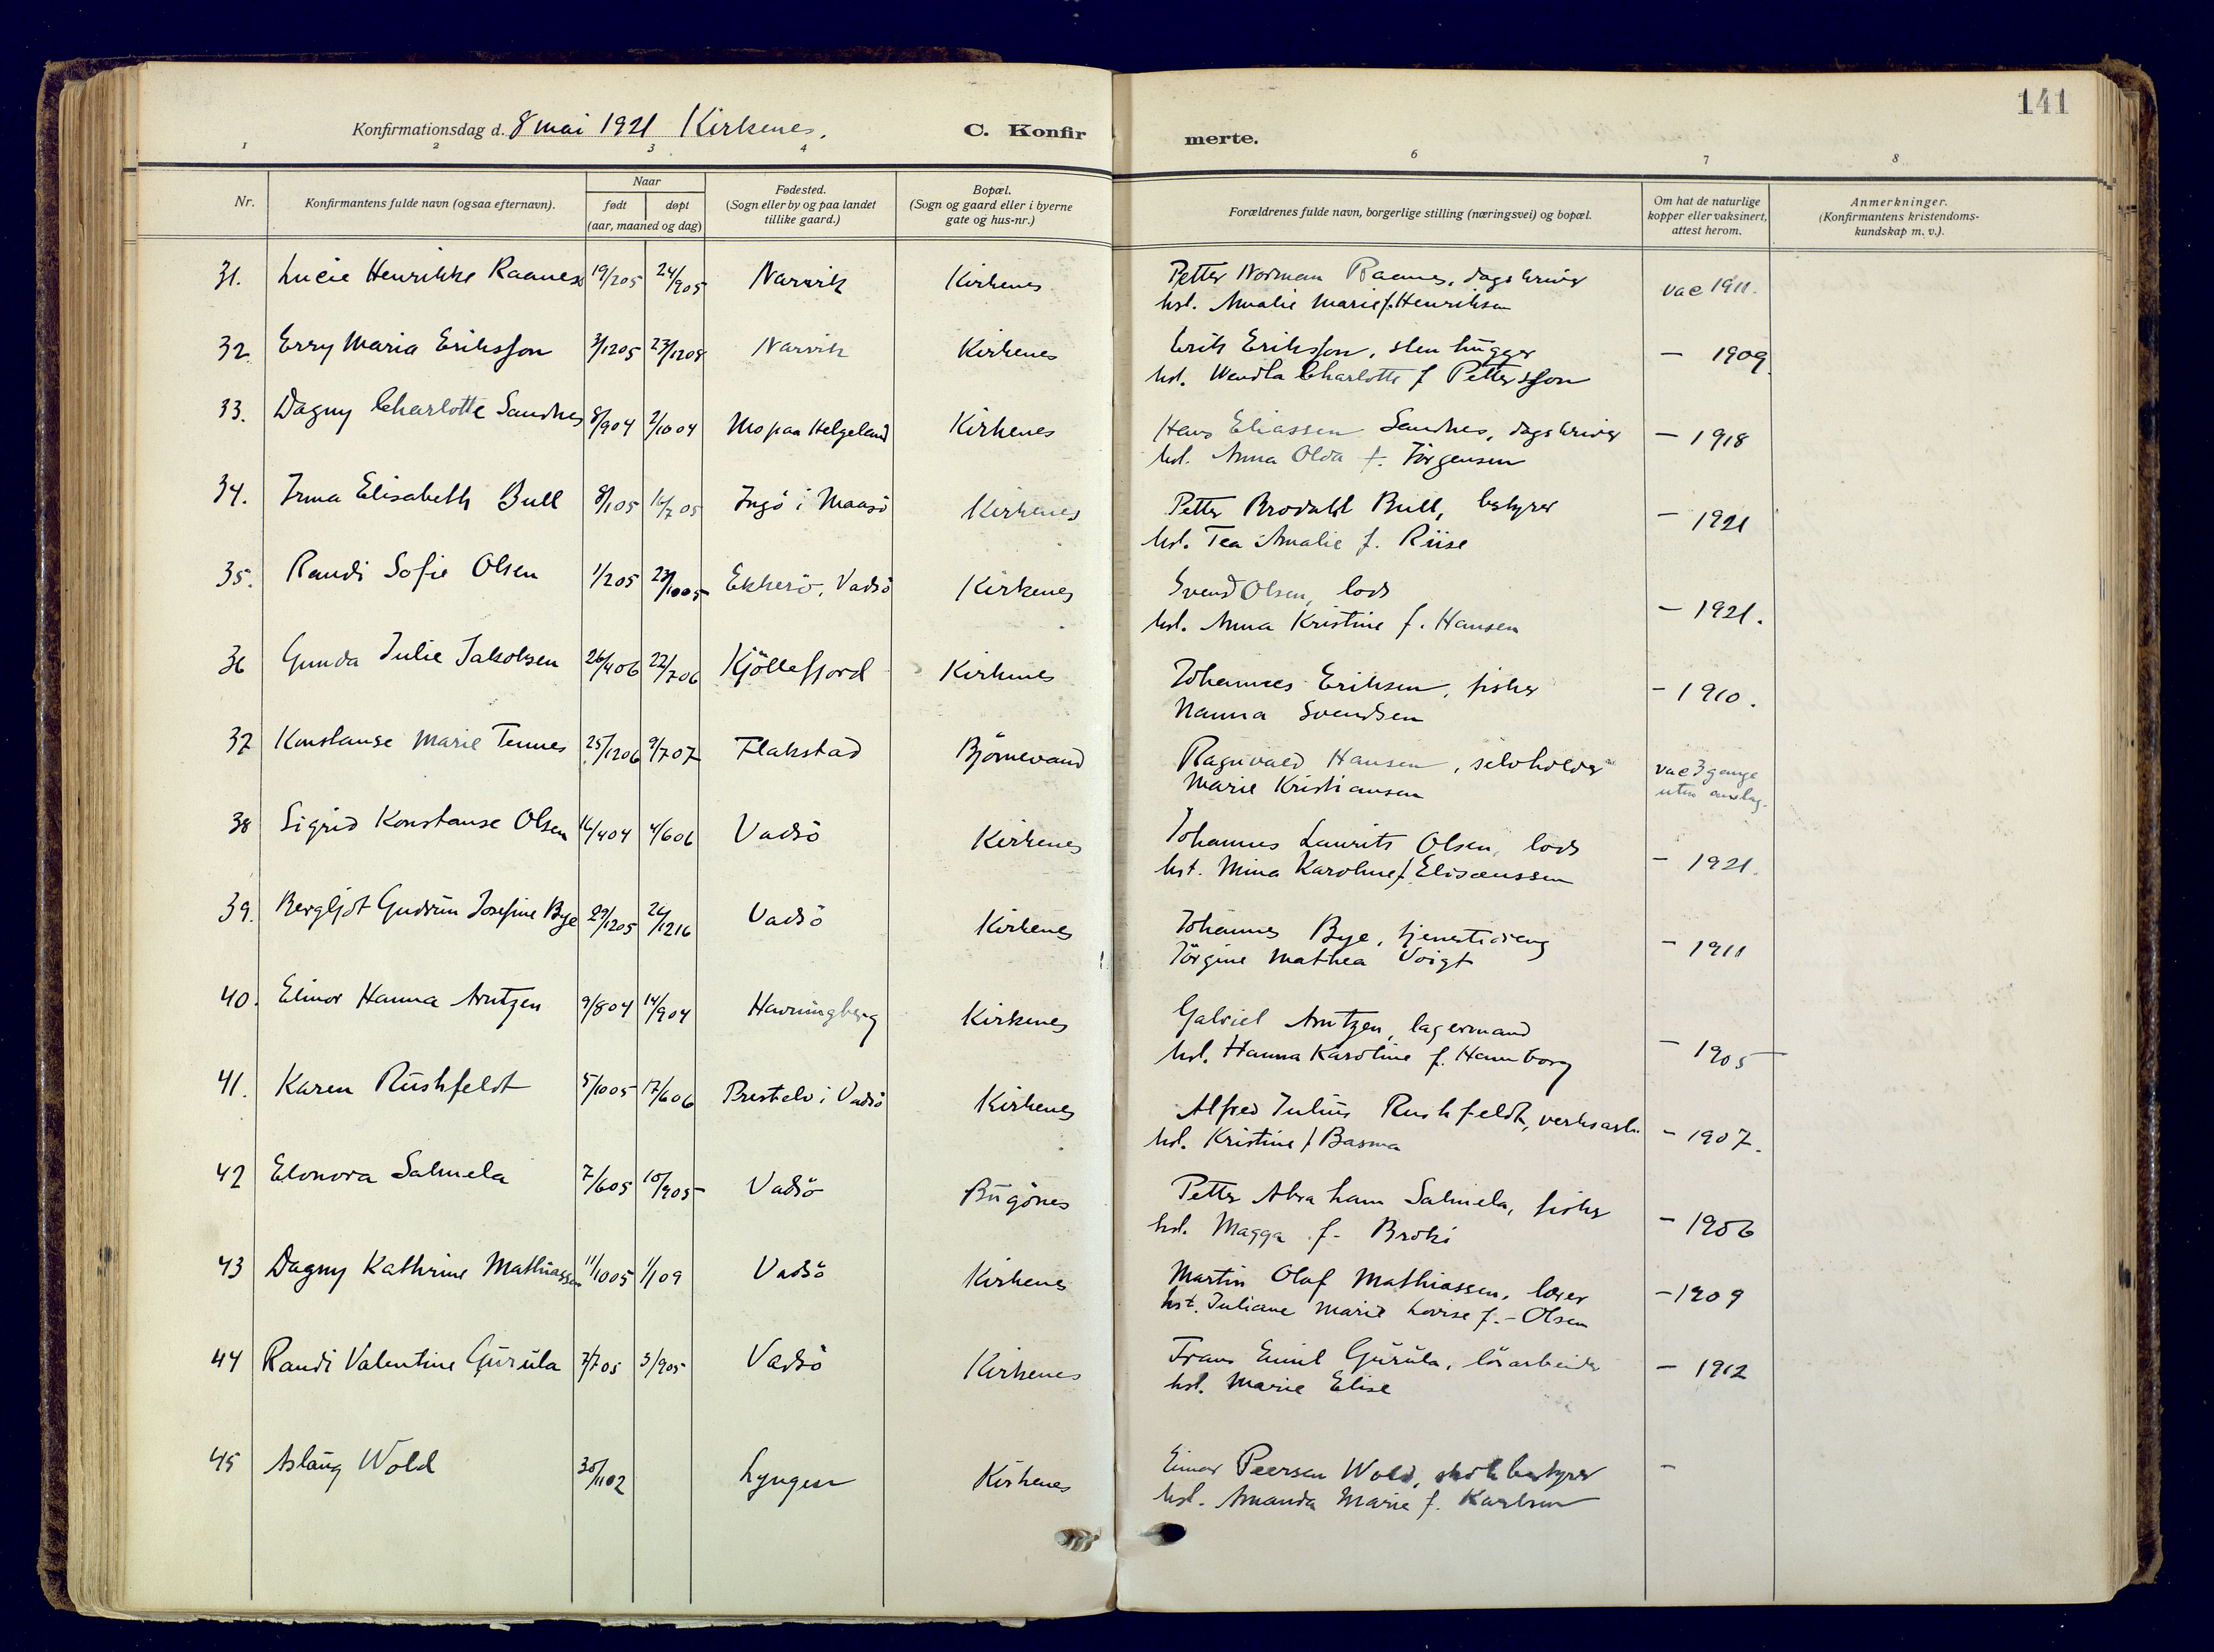 141
Konfirmationsdag d. 8 mai 1921 Kirkenes. C. Konfir merte.
1 2 3 4 6 7 8
Nr. Konfirmantens fulde navn (ogsaa efternavn). Naar født døpt (aar, maaned og dag) Fødested. (Sogn eller by og paa landet tillike gaard.) Bopæl. (Sogn og gaard eller i byerne gate og hus-nr.) Forældrenes fulde navn, borgerlige stilling (næringsvei) og bopæl. Om hat de naturlige kopper eller vaksinert, attest herom. Anmerkninger. (Konfirmantens kristendoms- kundskap m. v.).
31. Lucie Henrikke Raanes 19/205 24/905 Narvik Kirkenes Petter Norman Raanes, dagskriver vac 1911.
hst. Amalie Marie f. Henriksen
32. Erry Maria Eriksson 3/1205 23/1205 Narvik Kirkenes Erik Eriksson, stenhugger — 1909.
hst. Wendla Charlotte f Pettersson
33. Dagny Charlotte Sandnes 8/904 2/1004 Mo paa Helgeland Kirkenes Hans Eliassen Sandnes, dagskriver — 1918
hst. Anna Olda f. Jörgensen
34. Irma Elisabeth Bull 8/105 16/705 Ingö i Maasö Kirkenes Petter Brodahl Bull, bestyrer — 1921
hst. Tea Amalie f. Riise
35. Randi Sofie Olsen 1/205 23/1005 Ekkerö, Vadsö Kirkenes Svend Olsen, lods — 1921.
hst. Anna Kristine f. Hansen
36 Gunda Julie Jakobsen 26/406 22/706 Kjöllefjord Kirkenes Johannes Eriksen, fisker — 1910.
Nanna Svendsen
37 Konstanse Marie Tennes 25/1206 9/707 Flakstad Björnevand Ragnvald Hansen, selvholder vac 3 gange
Marie Kristiansen uten anslag.
38 Sigrid Konstanse Olsen 16/404 4/606 Vadsö Kirkenes Johannes Laurits Olsen, lods — 1921.
hst. Mina Karoline f. Eliseussen
39. Bergljot Gudrun Josefine Bye 29/1205 26/1216 Vadsö Kirkenes Johannes Bye, tjenestedreng — 1911
Jörgine Mathea Voigt
40. Elinor Hanna Arntzen 9/804 14/904 Havningberg Kirkenes Gabriel Arntzen, lagermand — 1905 —
hst. Hanna Karoline f. Hamborg
41. Karen Rushfeldt 5/1005 17/606 Prestelv i Vadsö Kirkenes Alfred Julius Rushfeldt, verksarb. — 1907.
hst. Kristine f Basma
42 Elonora Salmela 7/605 10/905 Vadsö Bugönes Petter Abraham Salmela, fisker — 1906
hst. Magga f. Broki
43 Dagny Kathrine Mathiassen 11/1005 1/109 Vadsö Kirkenes Martin Olaf Mathiassen, lærer — 1909
hst. Juliane Marie Lovise f. — Olsen
44 Randi Valentine Gurula 7/705 3/905 Vadsö Kirkenes Frans Emil Gurula, lösarbeider — 1912
hst. Marie Elise
45 Aslaug Wold 30/1102 Lyngen Kirkenes Einar Peersen Wold, bestyrer —
hst. Amanda Marie f. Karlsen